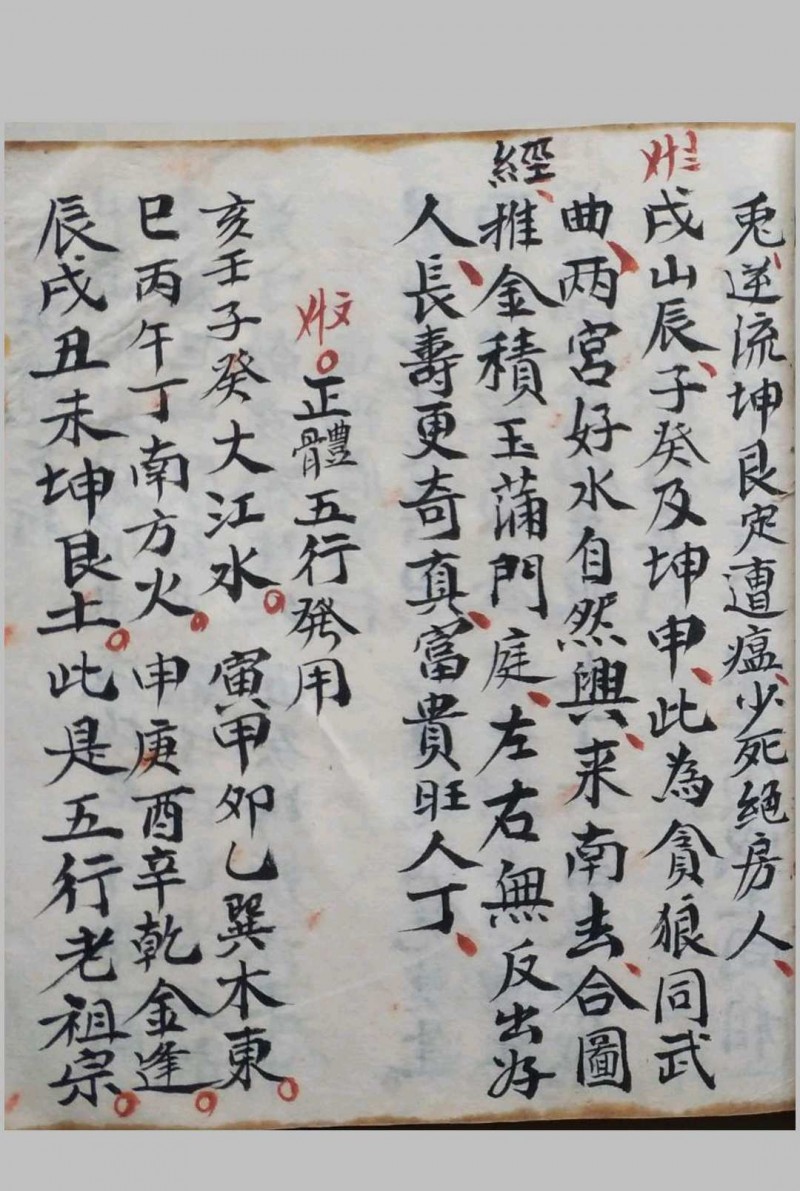 兎逆流坤艮定遭瘟少死絕房人
戌山辰子癸及坤申此為貪狼同武
曲两宮好水自然興来南去合圖
經推金積玉蒲門庭左右無反出好
人長壽更奇真富貴旺人丁
正體五行發用
亥壬子癸大江水 寅甲卯乙巽木東
巳丙午丁南方火 申庚酉辛乾金逢
辰戌丑未坤艮土此是五行老祖宗